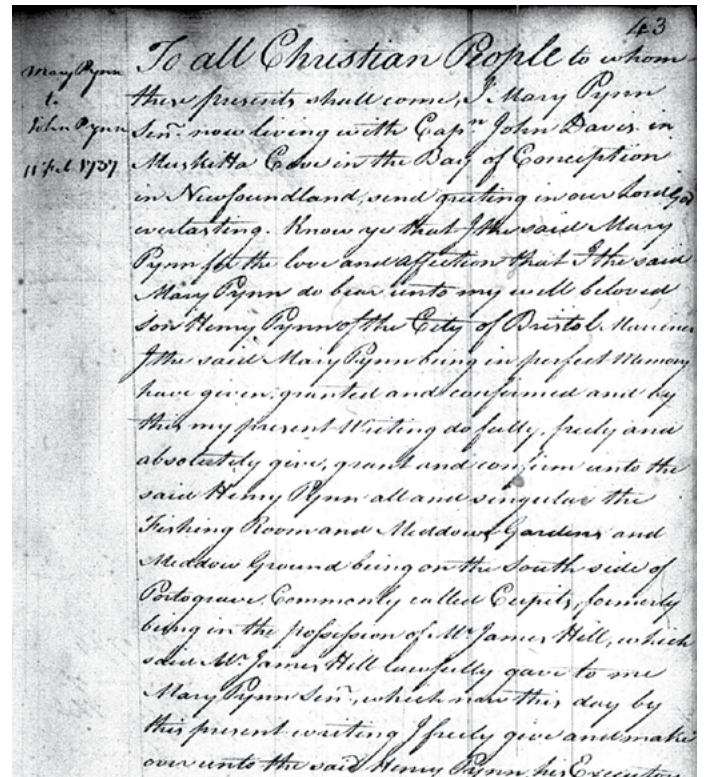 43
Mary Pynn
to
John Pynn
11 Feb 1737
To all Christian People to whom
these presents shall come, I Mary Pynn
Senr. now living with Capn John Davis in
Muskitta Cove in the Bay of Conception
in Newfoundland, send greeting in our Lord God
everlasting. Know ye that I the said Mary
Pynn for the love and affection that I the said
Mary Pynn do bear unto my well beloved
son Henry Pynn of the City of Bristol Mariner
I the said Mary Pynn being in perfect Memory
have given, granted and confirmed and by
this my present Writing do fully, freely and
absolutely give, grant and confirm unto the
said Henry Pynn all and singular the
Fishing Room and Meddows Gardens and
Meddow Ground being on the South side of
Portograve Commonly called Cupits, formerly
being in the possession of Mr James Hill, which
said Mr. James Hill lawfully gave to me
Mary Pynn Senr., which now this day by
this present writing I freely give and make
over unto the said Henry Pynn his Executors